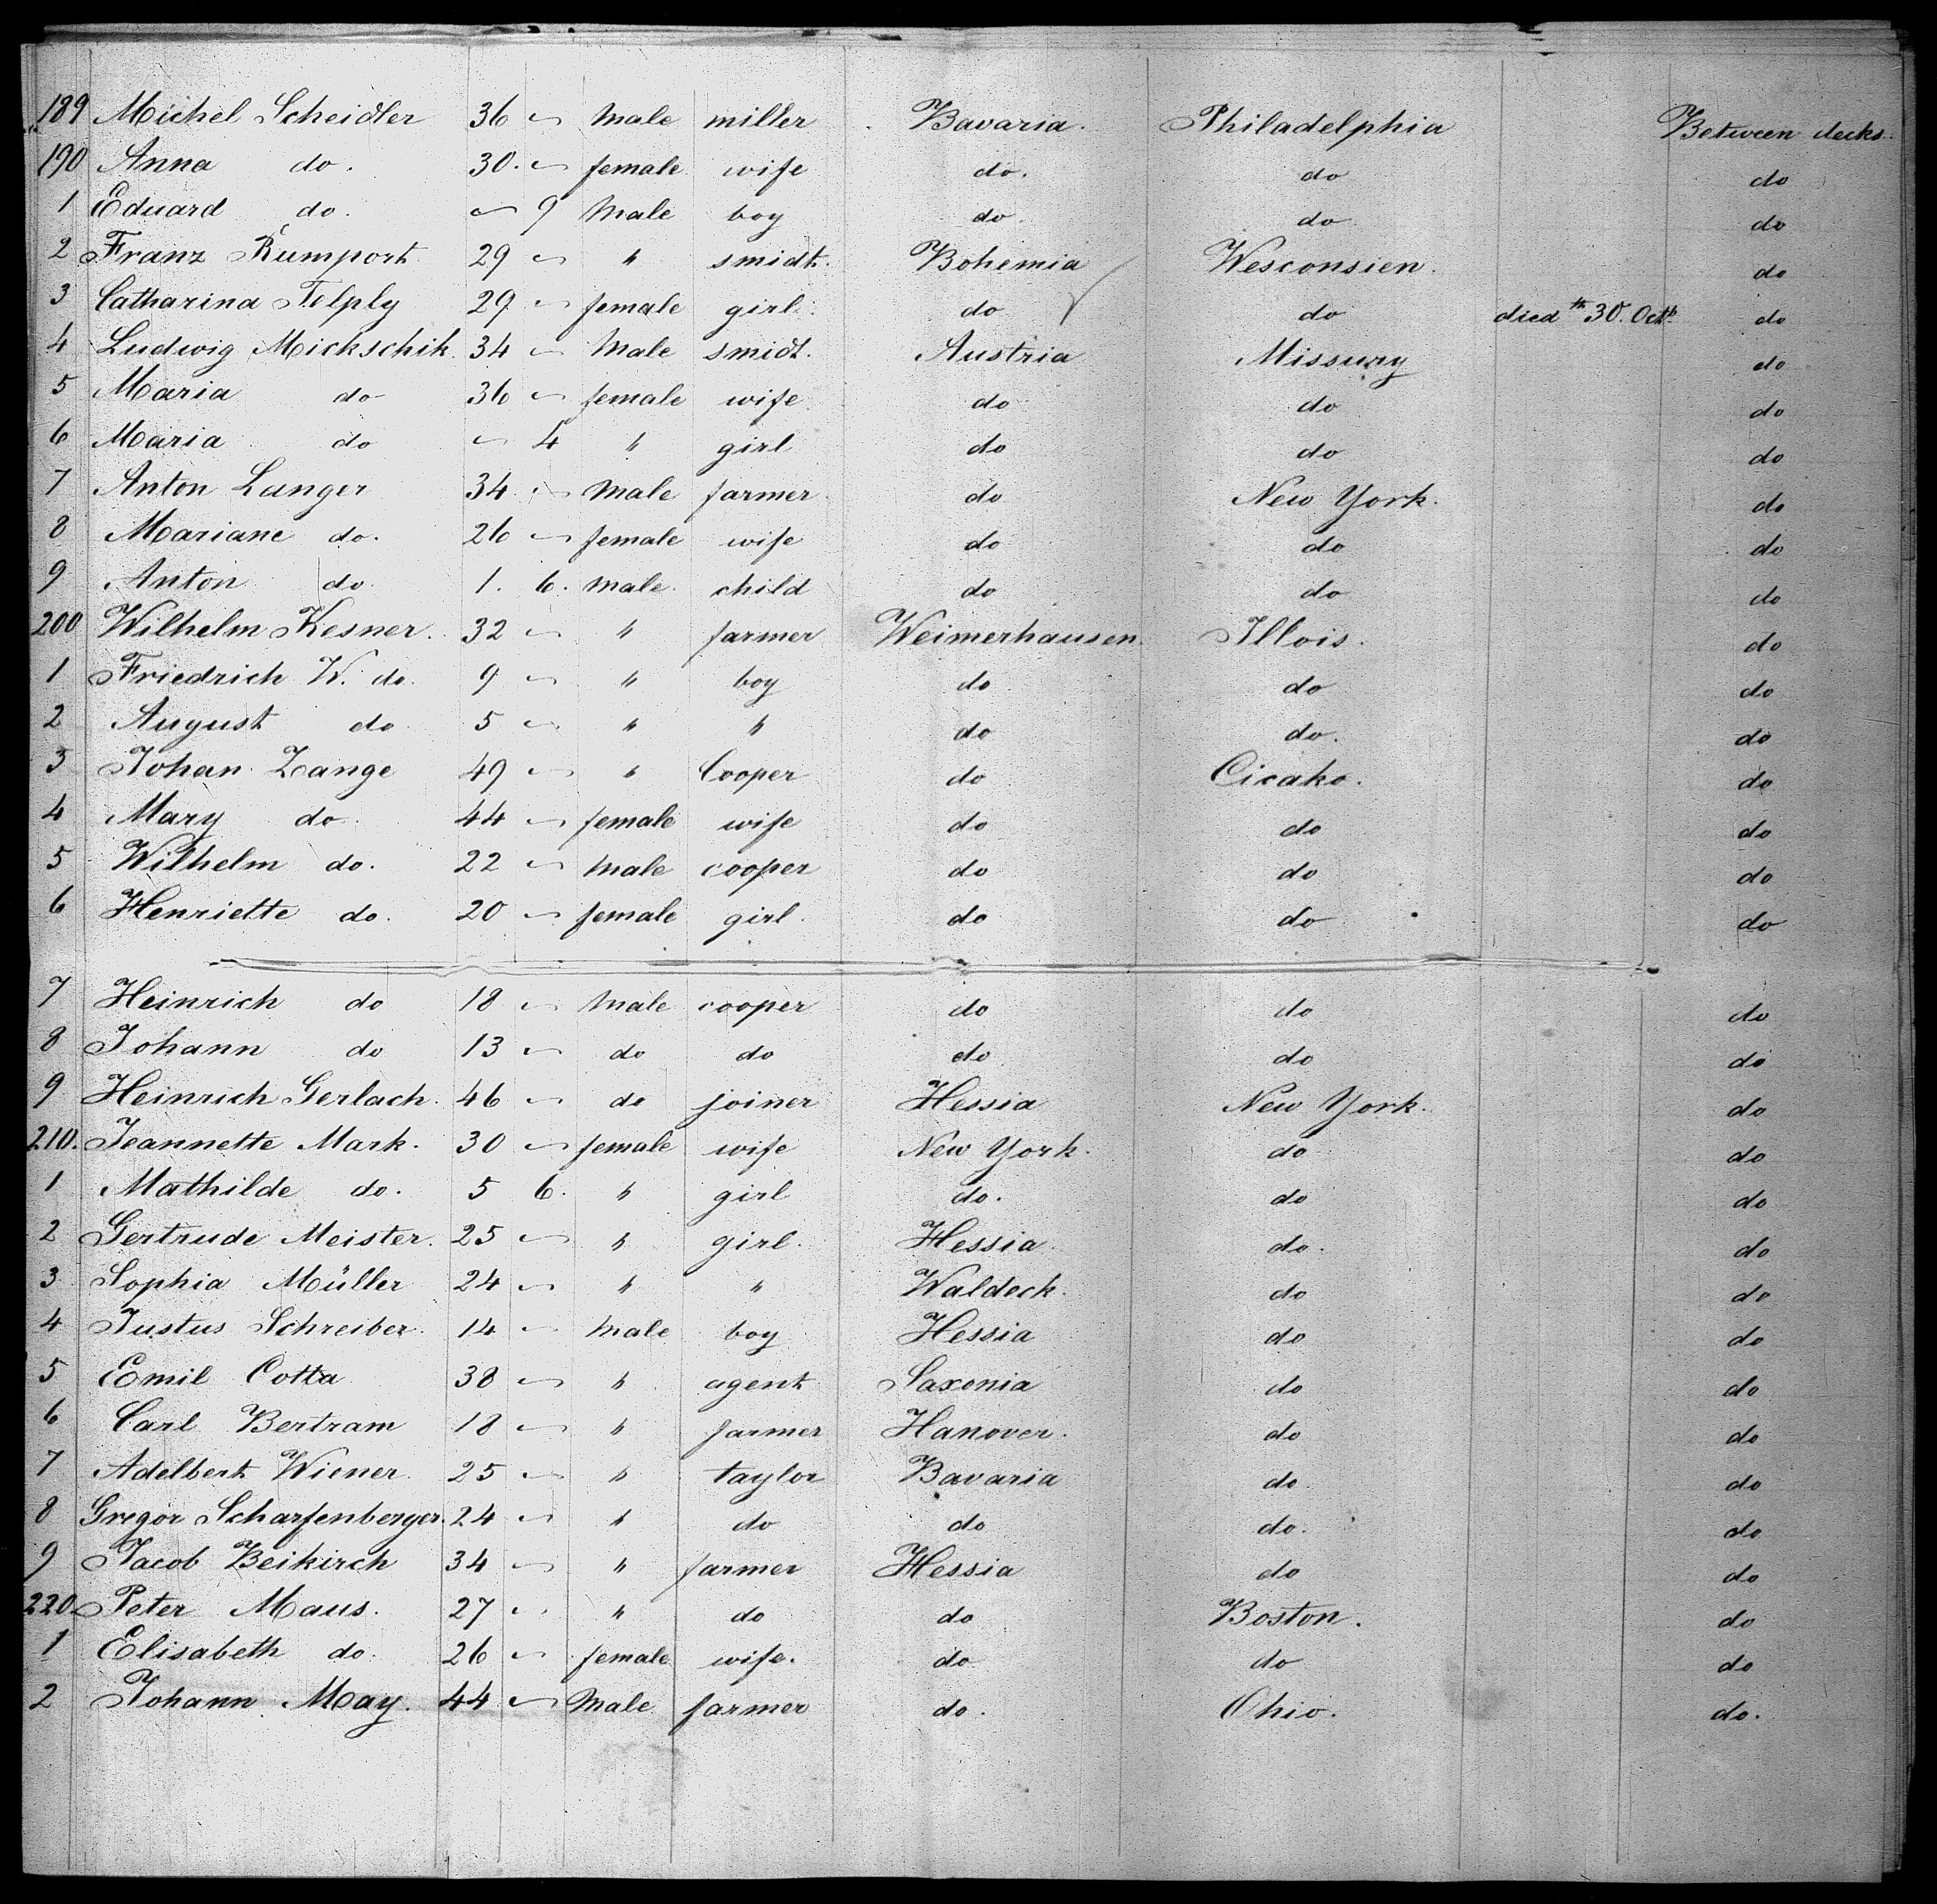 189 Michel Scheidler 36 ~ Male miller Bavaria. Philadelphia Between decks.
190 Anna do. 30. ~ female wife do. do do
1 Eduard do. ~ 9 Male boy do. do do
2 Franz Rumport 29 ~ " smidt. Bohemia Wesconsien. do
3 Catharina Telply 29 ~ female girl. do do died th 30. Octb. do
4 Ludwig Mickschik. 34 ~ Male smidt. Austria Missury do
5 Maria do 36 ~ female wife do do do
6 Maria do ~ 4 " girl do do do
7 Anton Langer 34 ~ Male farmer do New York. do
8 Mariane do. 26 ~ female wife do do do
9 Anton do. 1. 6. Male child do do do
200 Wilhelm Kesner. 32 ~ " farmer Weimerhausen. Illois. do
1 Friedrich W. do. 9 ~ " boy do do do
2 August do 5 ~ " " do do. do
3 Johan Zange 49 ~ " Cooper do Cicako. do
4 Mary do. 44 ~ female wife do do do
5 Wilhelm do. 22 ~ Male cooper do do do
6 Henriette do. 20 ~ female girl. do do do
7 Heinrich do 18 ~ Male cooper do do do
8 Johann do 13 ~ do do do do do
9 Heinrich Gerlach. 46 ~ do joiner Hessia New York. do
210. Jeannette Mark. 30 ~ female wife New York. do do
1 Mathilde do. 5 6. " girl do. do do
2 Gertrude Meister. 25 ~ " girl. Hessia. do. do
3 Sophia Müller 24 ~ " " Waldeck. do do
4 Justus Schreiber. 14 ~ Male boy Hessia do do
5 Emil Cotta 38 ~ " agent Saxonia do do
6 Carl Bertram 18 ~ " farmer Hanover. do do
7 Adelbert Wiener. 25 ~ " taylor Bavaria do do
8 Gregor Scharfenberger. 24 ~ " do do do. do
9 Jacob Beikirch 34 ~ " farmer Hessia do do
220. Peter Maus. 27 ~ " do do Boston. do
1 Elisabeth do. 26 ~ female wife. do do do
2 Johann May. 44 ~ Male farmer do. Ohio. do.